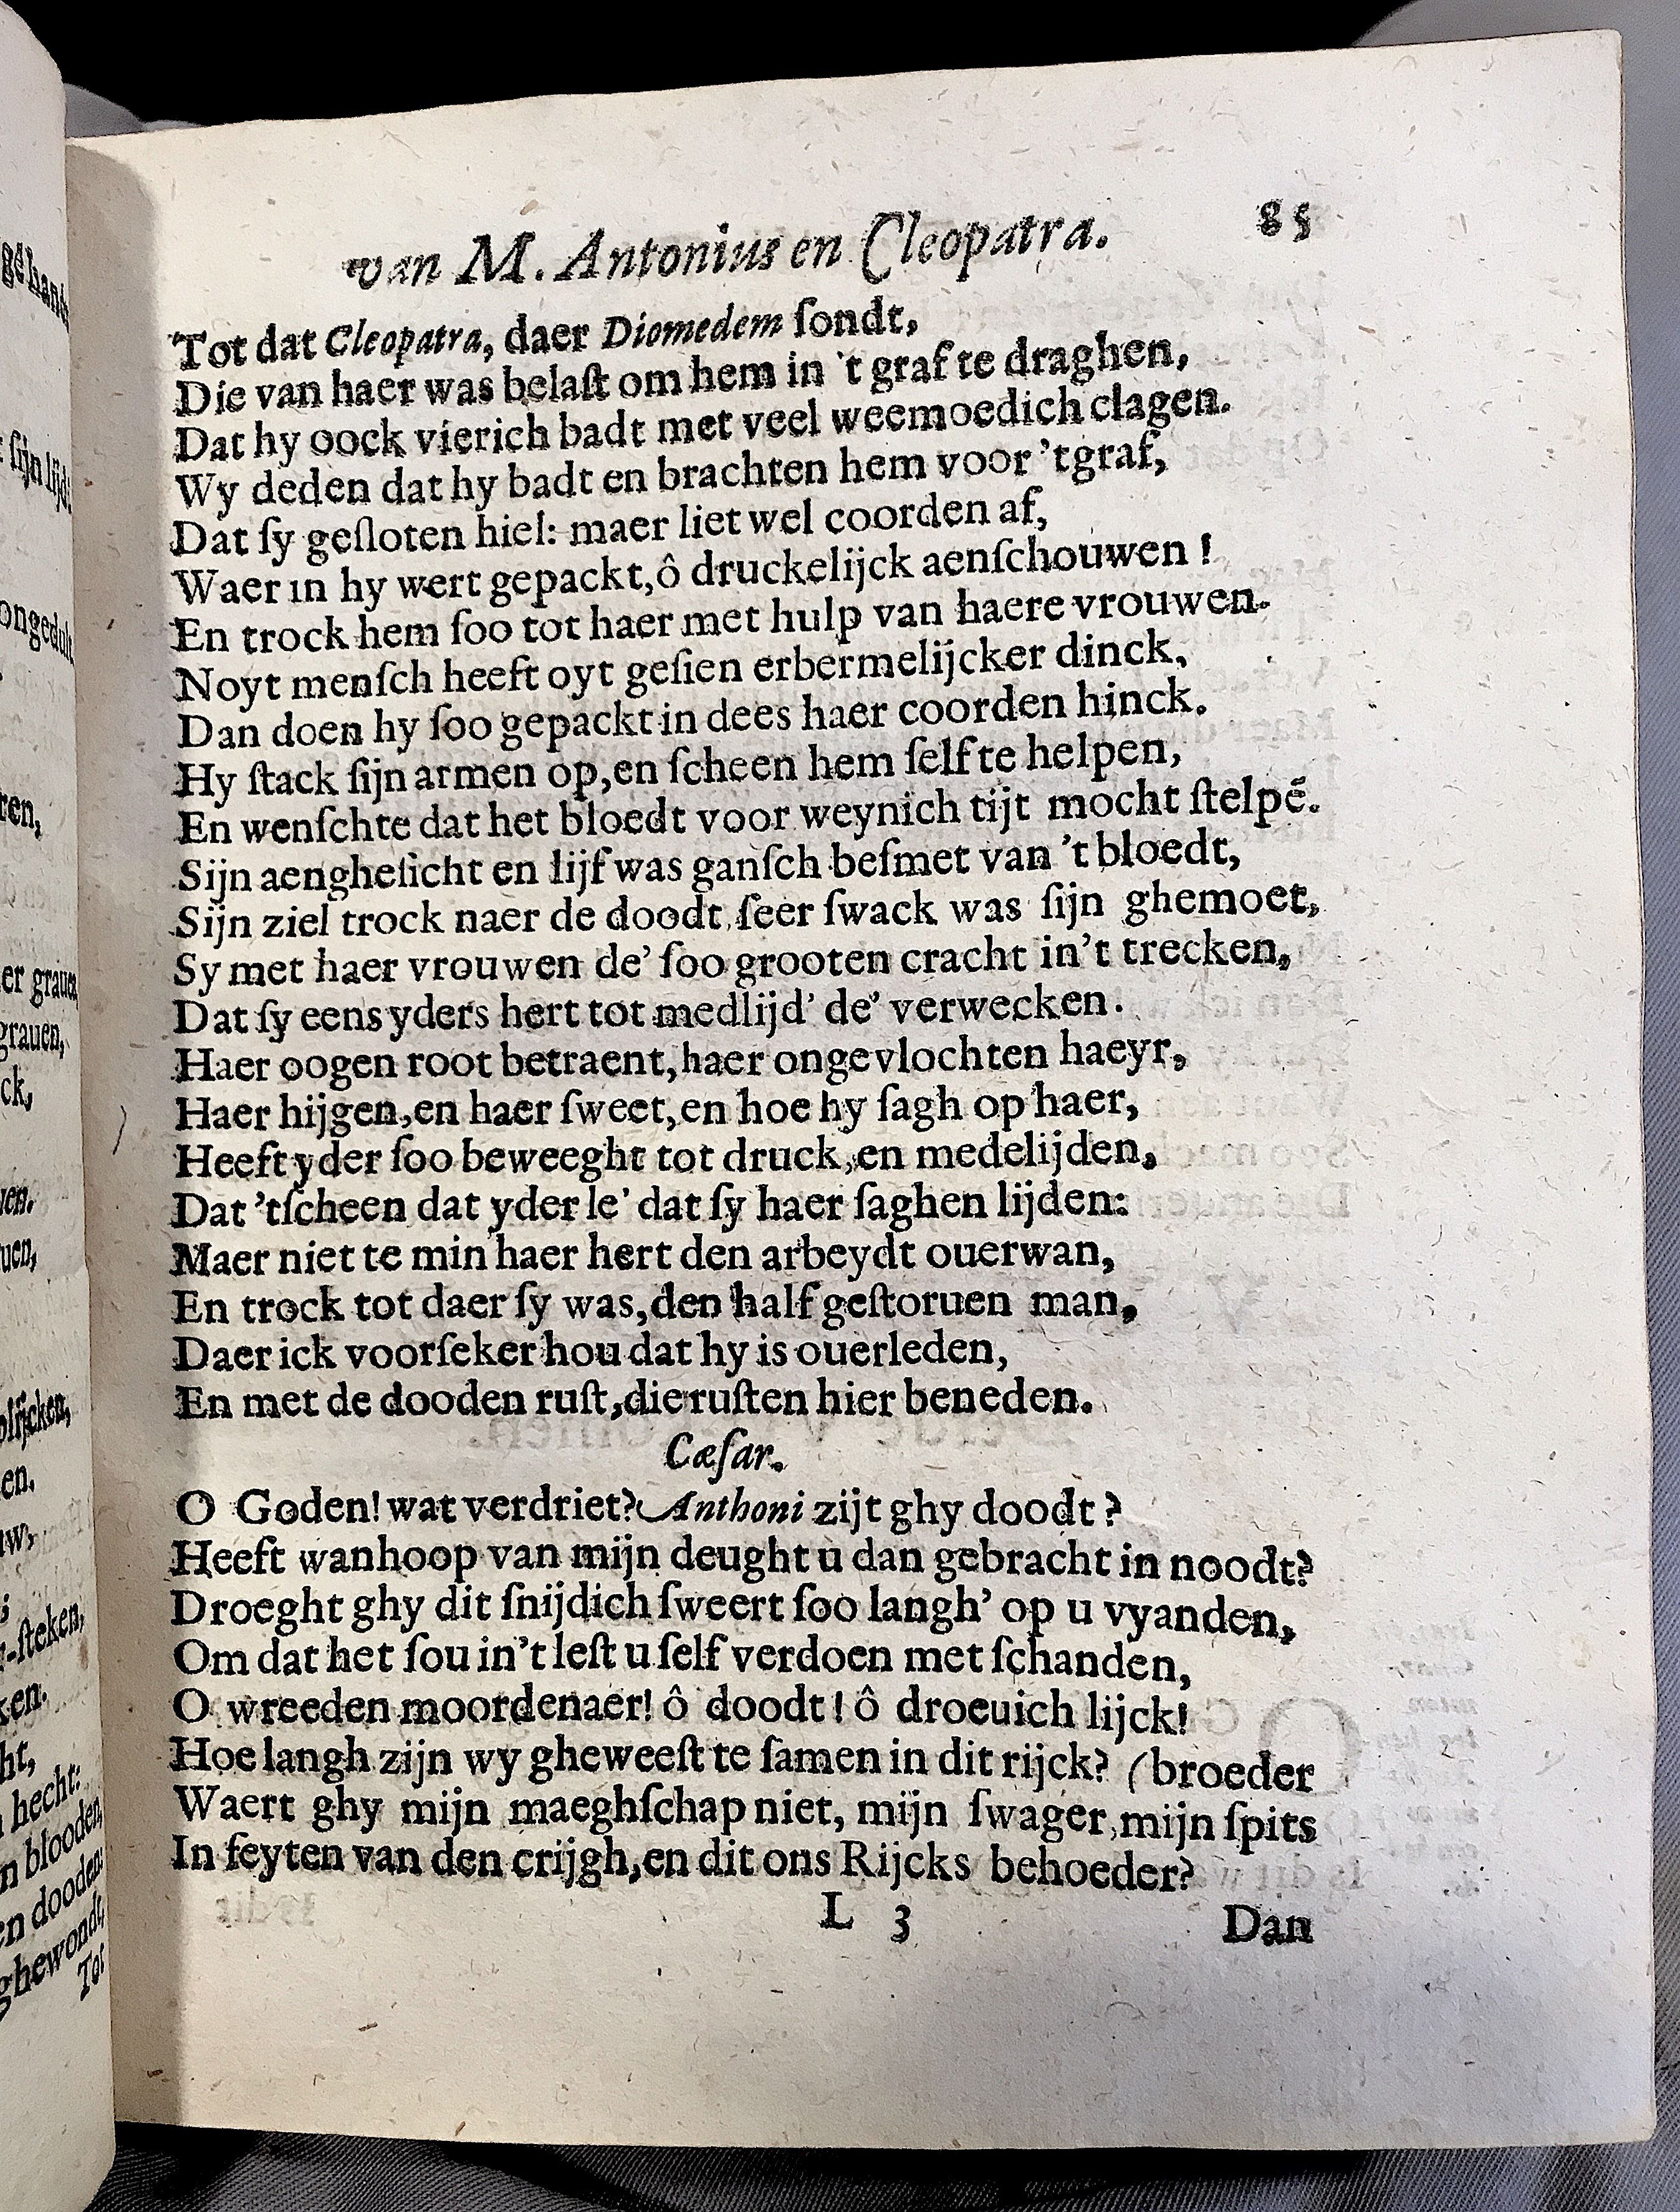 van M. Antonius en Cleopatra. 85
Tot dat Cleopatra, daer Diomedem ſondt,
Die van haer was belaſt om hem in 't graf te draghen,
Dat hy oock vierich badt met veel weemoedich clagen.
Wy deden dat hy badt en brachten hem voor 'tgraf,
Dat ſy geſloten hiel: maer liet wel coorden af,
Waer in hy wert gepackt, ô druckelijck aenſchouwen!
En trock hem ſoo tot haer met hulp van haere vrouwen.
Noyt menſch heeft oyt geſien erbermelijcker dinck,
Dan doen hy ſoo gepackt in dees haer coorden hinck.
Hy ſtack ſijn armen op, en ſcheen hem ſelf te helpen,
En wenſchte dat het bloedt voor weynich tijt mocht ſtelpẽ.
Sijn aengheſicht en lijf was ganſch beſmet van 't bloedt,
Sijn ziel trock naer de doodt, ſeer ſwack was ſijn ghemoet,
Sy met haer vrouwen de' ſoo grooten cracht in't trecken,
Dat ſy eens yders hert tot medlijd' de' verwecken.
Haer oogen root betraent, haer ongevlochten haeyr,
Haer hijgen, en haer ſweet, en hoe hy ſagh op haer,
Heeft yder ſoo beweeght tot druck, en medelijden,
Dat 'tſcheen dat yder le' dat ſy haer ſaghen lijden:
Maer niet te min haer hert den arbeydt ouerwan,
En trock tot daer ſy was, den half geſtoruen man,
Daer ick voorſeker hou dat hy is ouerleden,
En met de dooden ruſt, die ruſten hier beneden.
Cæſar.
O Goden! wat verdriet? Anthoni zijt ghy doodt?
Heeft wanhoop van mijn deught u dan gebracht in noodt?
Droeght ghy dit ſnijdich ſweert ſoo langh' op u vyanden,
Om dat het ſou in't leſt u ſelf verdoen met ſchanden,
O wreeden moordenaer! ô doodt! ô droeuich lijck!
Hoe langh zijn wy gheweeſt te ſamen in dit rijck? (broeder
Waert ghy mijn maeghſchap niet, mijn ſwager, mijn ſpits
In feyten van den crijgh, en dit ons Rijcks behoeder?
L 3 Dan